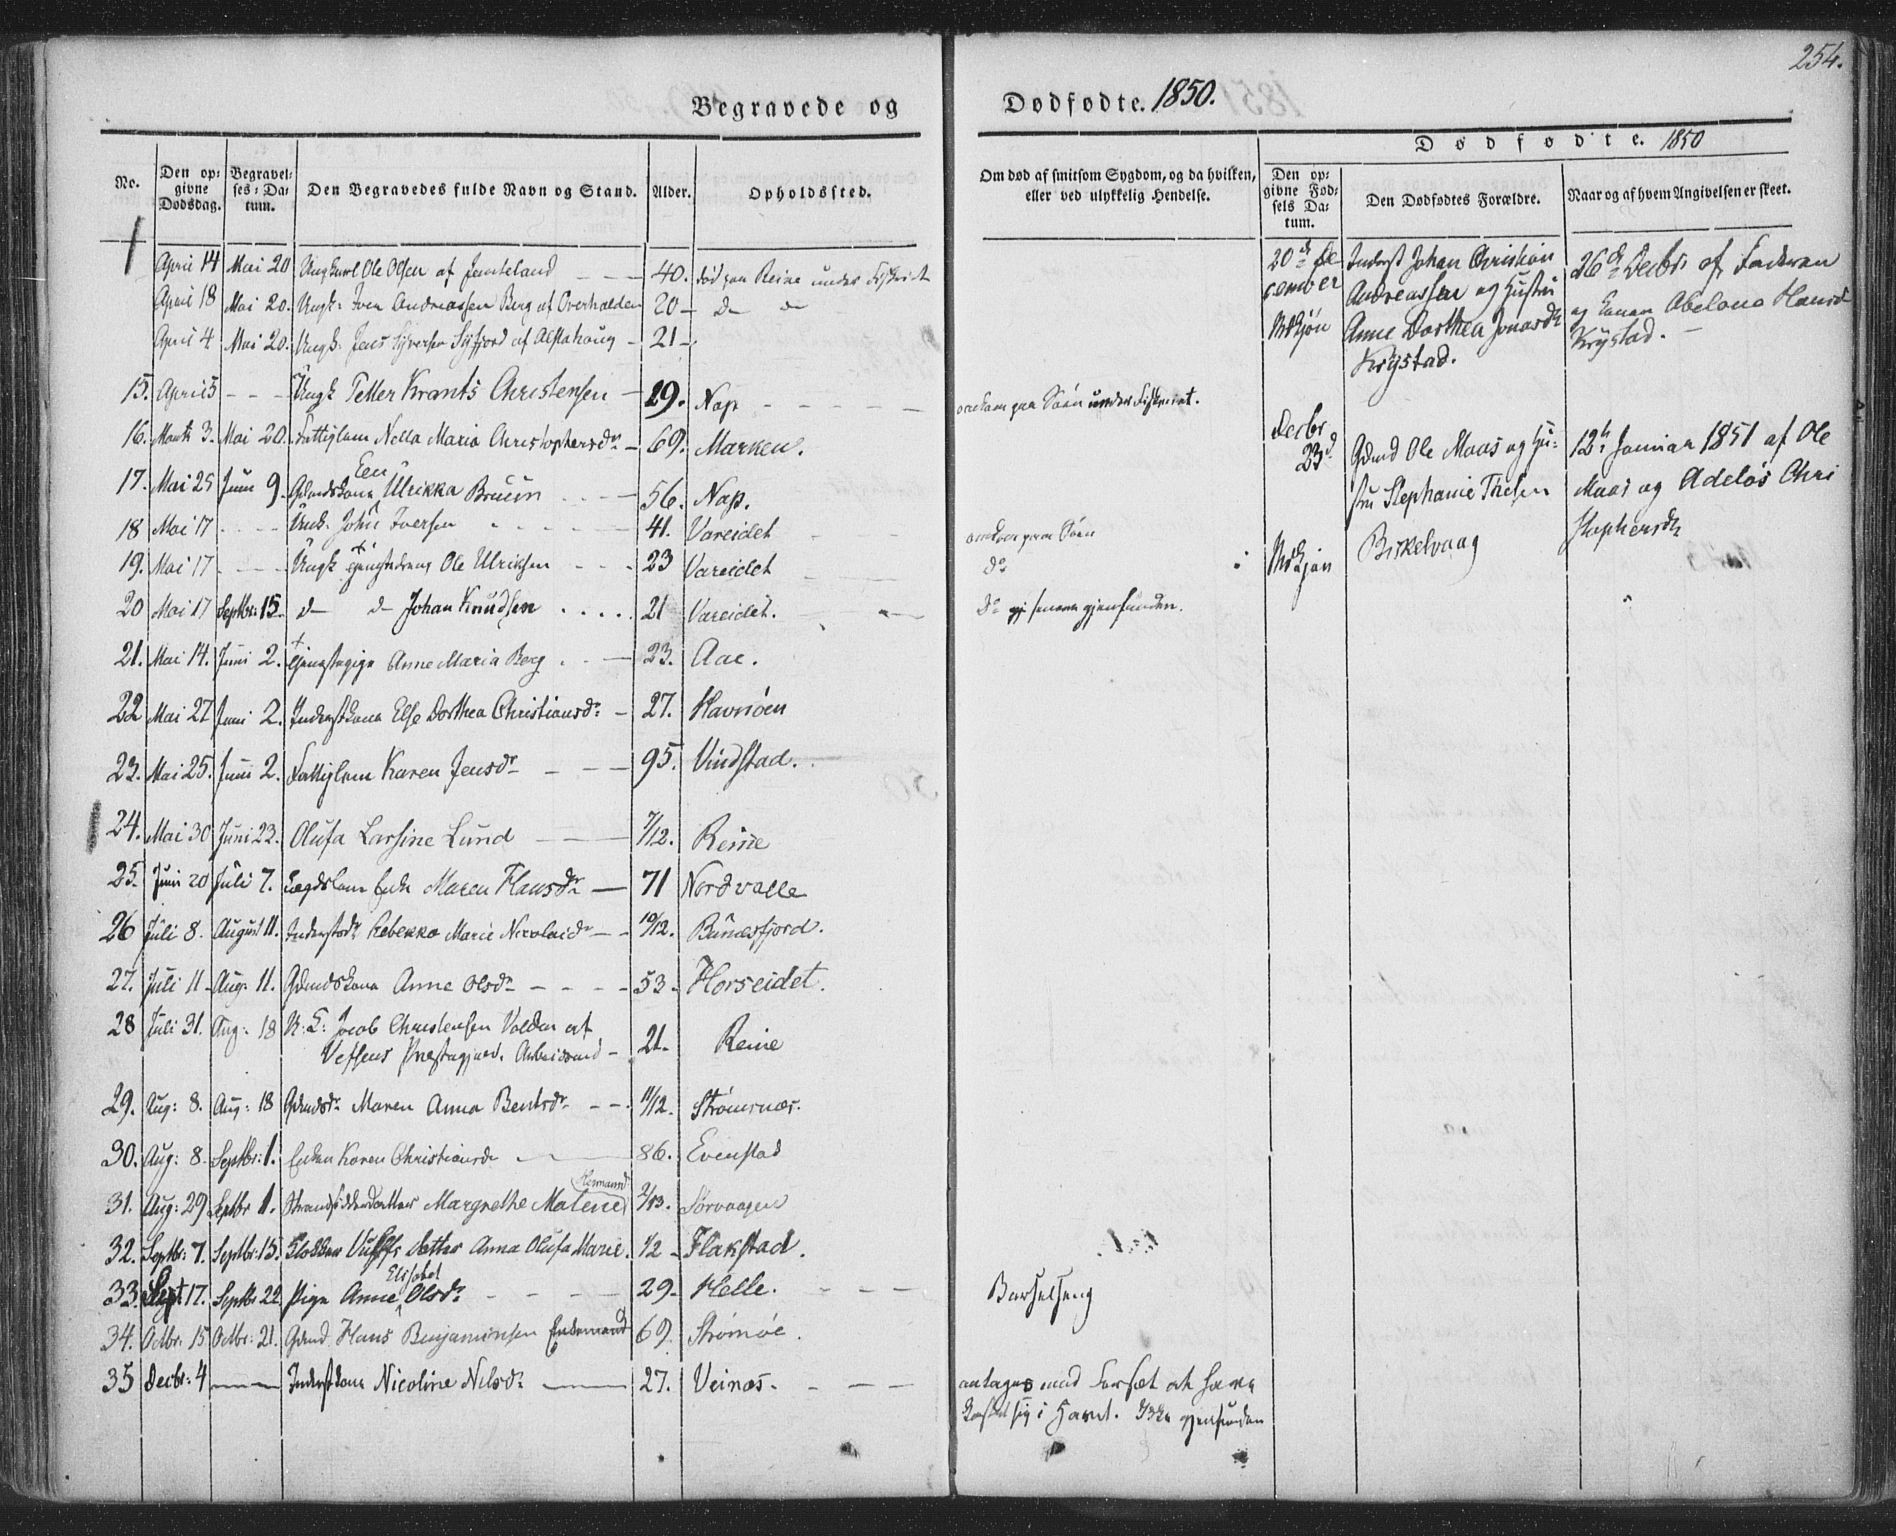 254.
Begravede og Dødfødte. 1850.
Dødfødte. 1850
No.
Den opgivne Dødsdag.
Begravelses-Datum.
Den Begravedes fulde Navn og Stand.
Alder.
Opholdssted.
Om død af smitsom Sygdom, og da hvilken, eller ved ulykkelig Hendelse.
Den opgivne Fødsels Datum.
Den Dødfødtes Forældre.
Naar og af hvem Angivelsen er skeet.
April 14 Mai 20 Ungkarl Ole Olsen af Jemteland 40. død paa Reine under Fiskeriet
April 18 Mai 20. Ungk: Iver Andreassen Berg af Overhalden 20 d d
April 4 Mai 20. Ungk. Jens Syversen af Alstahoug 21
15. April 5 Ungk Petter Krants Christensen 19. Nap omkom paa Søen under Fiskeriet.
16. Marts 3. Mai 20. Fattiglem Nella Maria Christophersdr 69. Marken.
17. Mai 25 Juni 9. Gdmdskone Ulrikka Bruun 56. Nap.
18 Mai 17 Ungk. John Iversen 41. Vareidet omkom paa Søen
19. Mai 17 Ungk Ole Ulriksen 23 Vareidet do
20 Mai 17 Septbr: 15. d d Johan Knudsen 21 Vareidet. do senere gjenfunden.
21. Mai 14. Juni 2. Anne Maria Berg 23. Aae.
22 Mai 27 Juni 2. Inderstkone Else Dorthea Christiansdr 27. Havnøen
23. Mai 25. Juni 2. Fattiglem Karen Jensdr 95. Vindstad.
24. Mai 30 Juni 23. Olufa Larsine Lund 7/12. Reine
25. Juni 20 Juli 7. Lægdslem Enke Maren Hansdr 71 Nordvalle
26 Juli 8. August 11. Rebekka Marie Nicolaidr 10/12. Bunesfjord.
27. Juli 11 Aug: 11. Gdmdskone Anne Olsdr 53 Horseidet.
28 Juli 31. Aug: 18 Jacob Christensen af
Vefsens Præstegjeld. Arbeidsmd 21. Reine
29. Aug: 8. Aug: 18 Gdmdsdr Maren Anna Bentsdr 11/12. Strømnæs.
30. Aug: 8. Septbr: 1. Enken Karen Christiansdr 86. Evenstad
31. Aug: 29 Septbr 1. Strandsidderdatter Margrethe Malene Hermansdr Sørvaagen
32. Septbr: 7. Septbr: 15. Klokker datter Anna Olufa Marie. 1/2 Flakstad.
33. Sept 17. Septbr 22 Pige Anne Elisabet Olsdr 29 Helle. Barselseng
34. Octbr: 15 Octbr: 21. Gdmd Hans Benjaminsen Enkemand 69. Strømøe.
35 Decbr: 4 Inderstkone Nicoline Nilsdr 27. Veinæs. antages med Forsæt at have
kastet sig i Havet. Ikke gjenfunden
20de December
Mskjøn
Inderst Johan Christian
Andreassen og Hustru
Anne Dorthea Jonasdr
Krystad.
26de Decbr: af Faderen
og Konen Abelona Hansdr
Krystad.
Decbr 23d
Mskjøn
Gdmd Ole Maas og Hustru Stephanie
Birkelvaag
12te Januar 1851 af Ole
Maas og Adelös Christophersdr